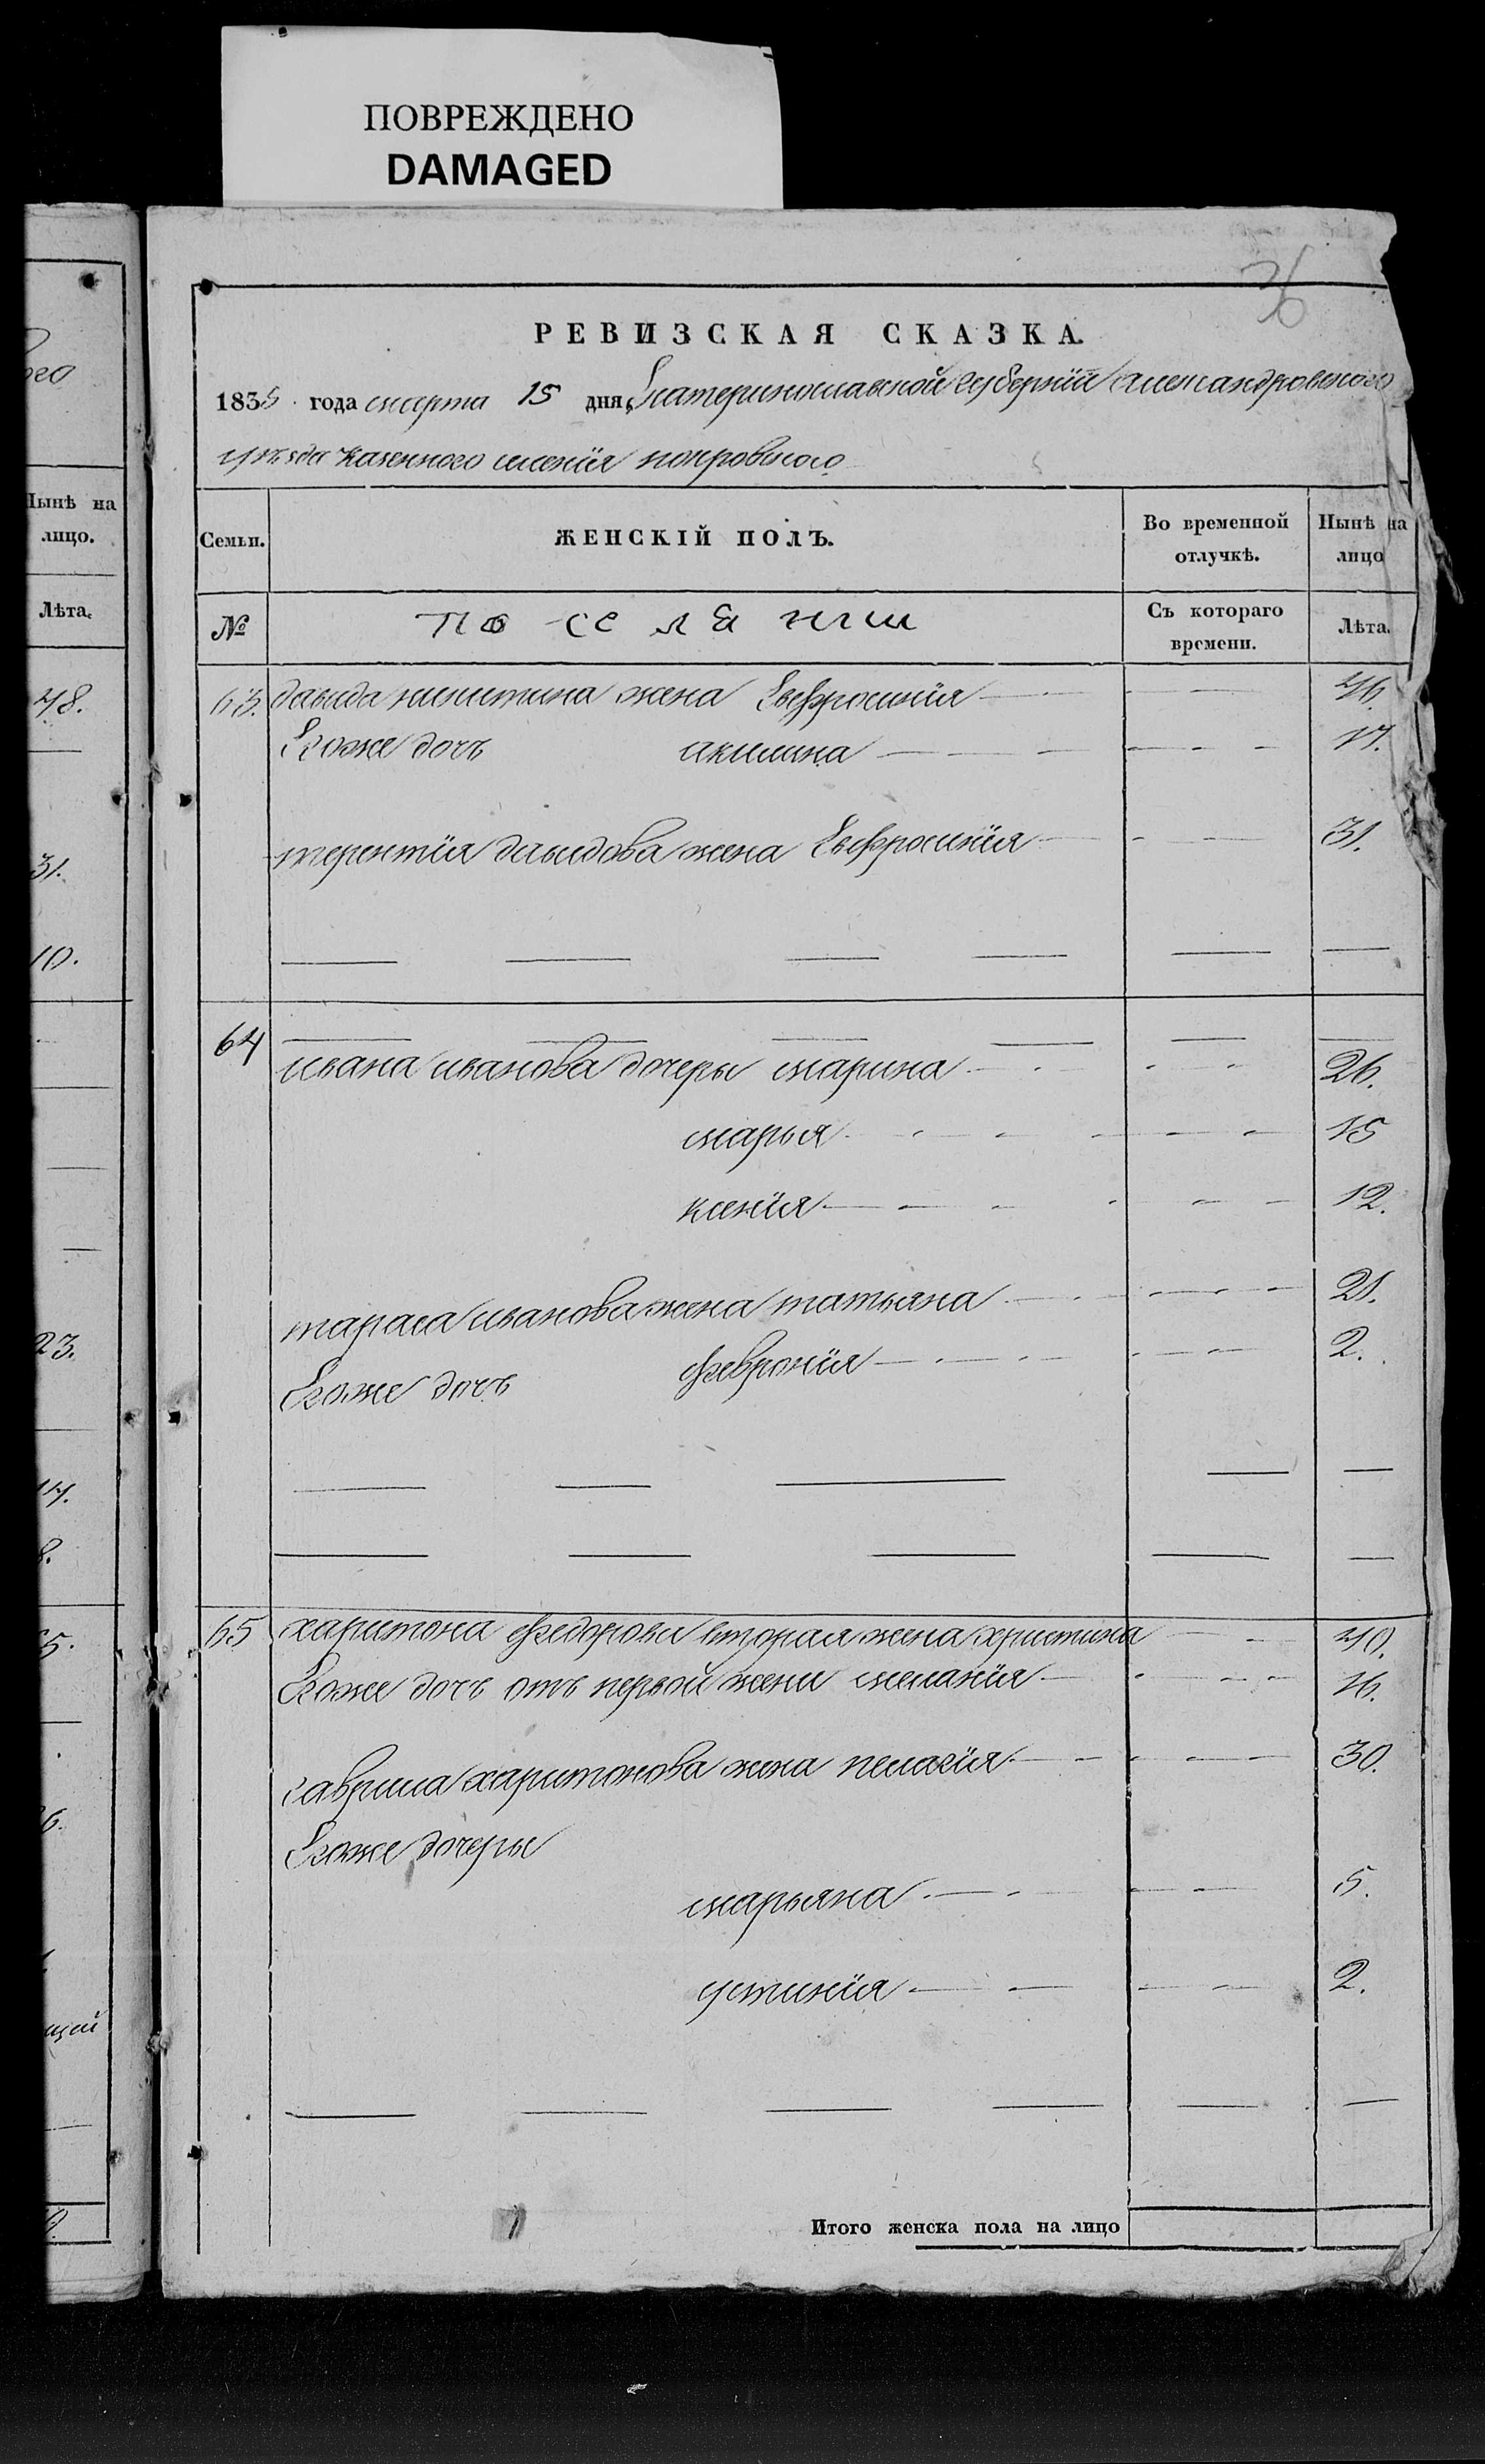 ПОВРЕЖДЕНО
DAMAGED
36
РЕВИЗСКАЯ СКАЗКА.
1835 года марта 15 дня, Екатеринославской губернїи Александровского
уѣзда казенного селенїя покровского
Нынѣ на
лицо.
Лѣта.
Семьи.
ЖЕНСКІЙ ПОЛЪ.
Во временной
отлучкѣ.
Нынѣ на
лицо
№
поселянии
Съ котораго
времени.
Лѣта.
48.
31.
10.
23.
14.
8.
щей
63. давида никитина жена Евфросинїя 46.
Егоже дочь акилина 17.
терентїя давидова жена Евфросинїя 31.
64
ивана иванова дочеры марина 26.
марья 15
ксенїя 12.
тараса иванова жена татьяна 21.
Егоже дочь февронїя 2.
65 харитона федорова вторая жена христина 40.
Егоже дочь отъ первой жени меланїя 16.
гаврила харитонова жена пелагїя 30.
Егоже дочеры
марьяна 5.
устинїя 2.
Итого женска пола на лицо